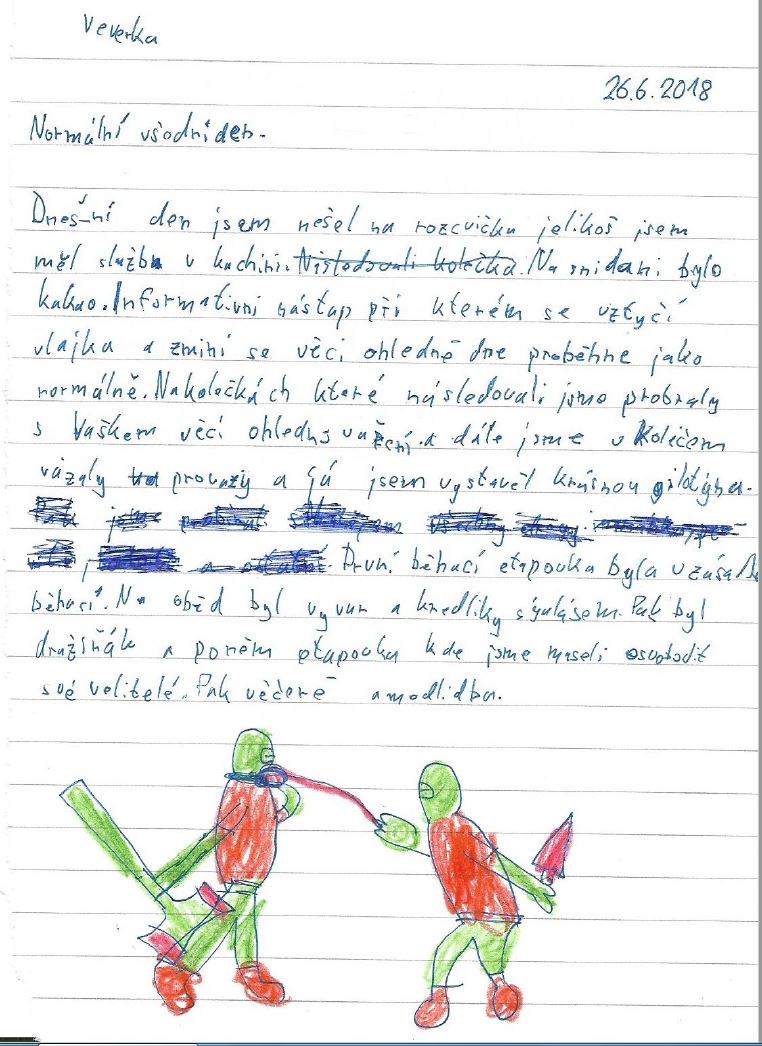 Veverka
26.6.2018
Normální všodní den.
Dnešní den jsem nešel na rozcvičku jelikoš jsem
měl službu v kuchini. Následovali kolečka. Na snidani bylo
kakao. Informativní nástap při kterém se vztyčí
vlajka a zmíní se věci ohledně dne proběhne jako
normálně. Na kolečkách které následovali jsme probraly
s Vaškem věcí ohledně vaření. a dále jsme v Kolečem
vázaly provazy a já jsem vystavěl krásnou gilotýnu.
První běhací etapovka byla
běhací. Na oběd byl vyvar a knedliky s gulášem. Pak byl
družiňák a poném etapouka kde jsme museli
své velitelé. Pak věčeře a modlidba.